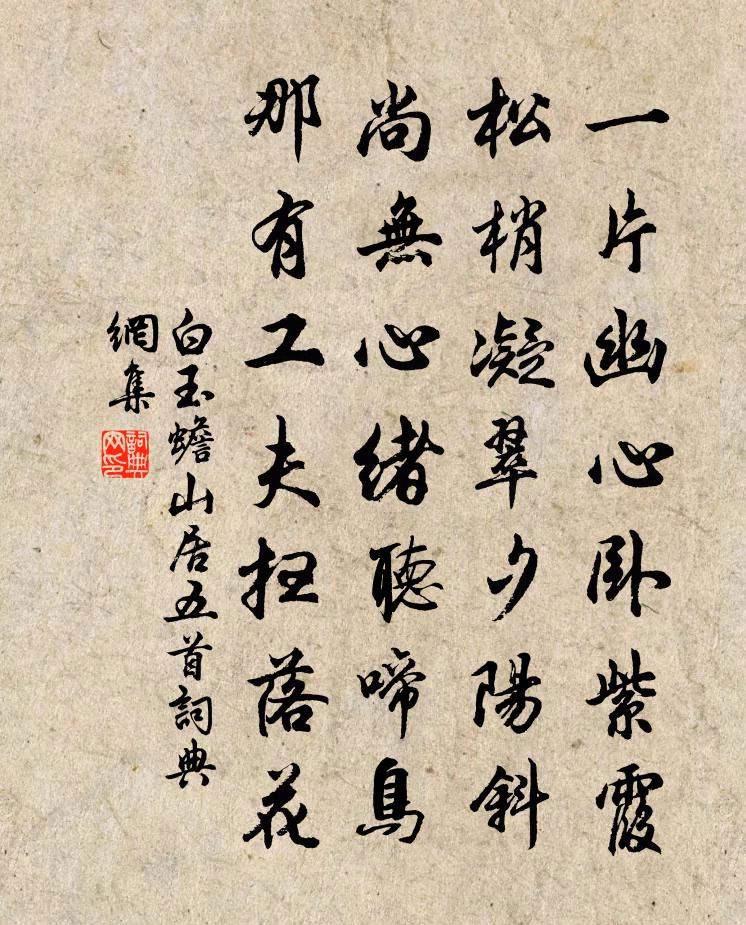 一片幽心卧紫霞
松梢凝翠夕陽斜
尚無心緒聽啼鳥
那有工夫扫落花
白玉蟾山居五首詞典
網集
詞典
网印